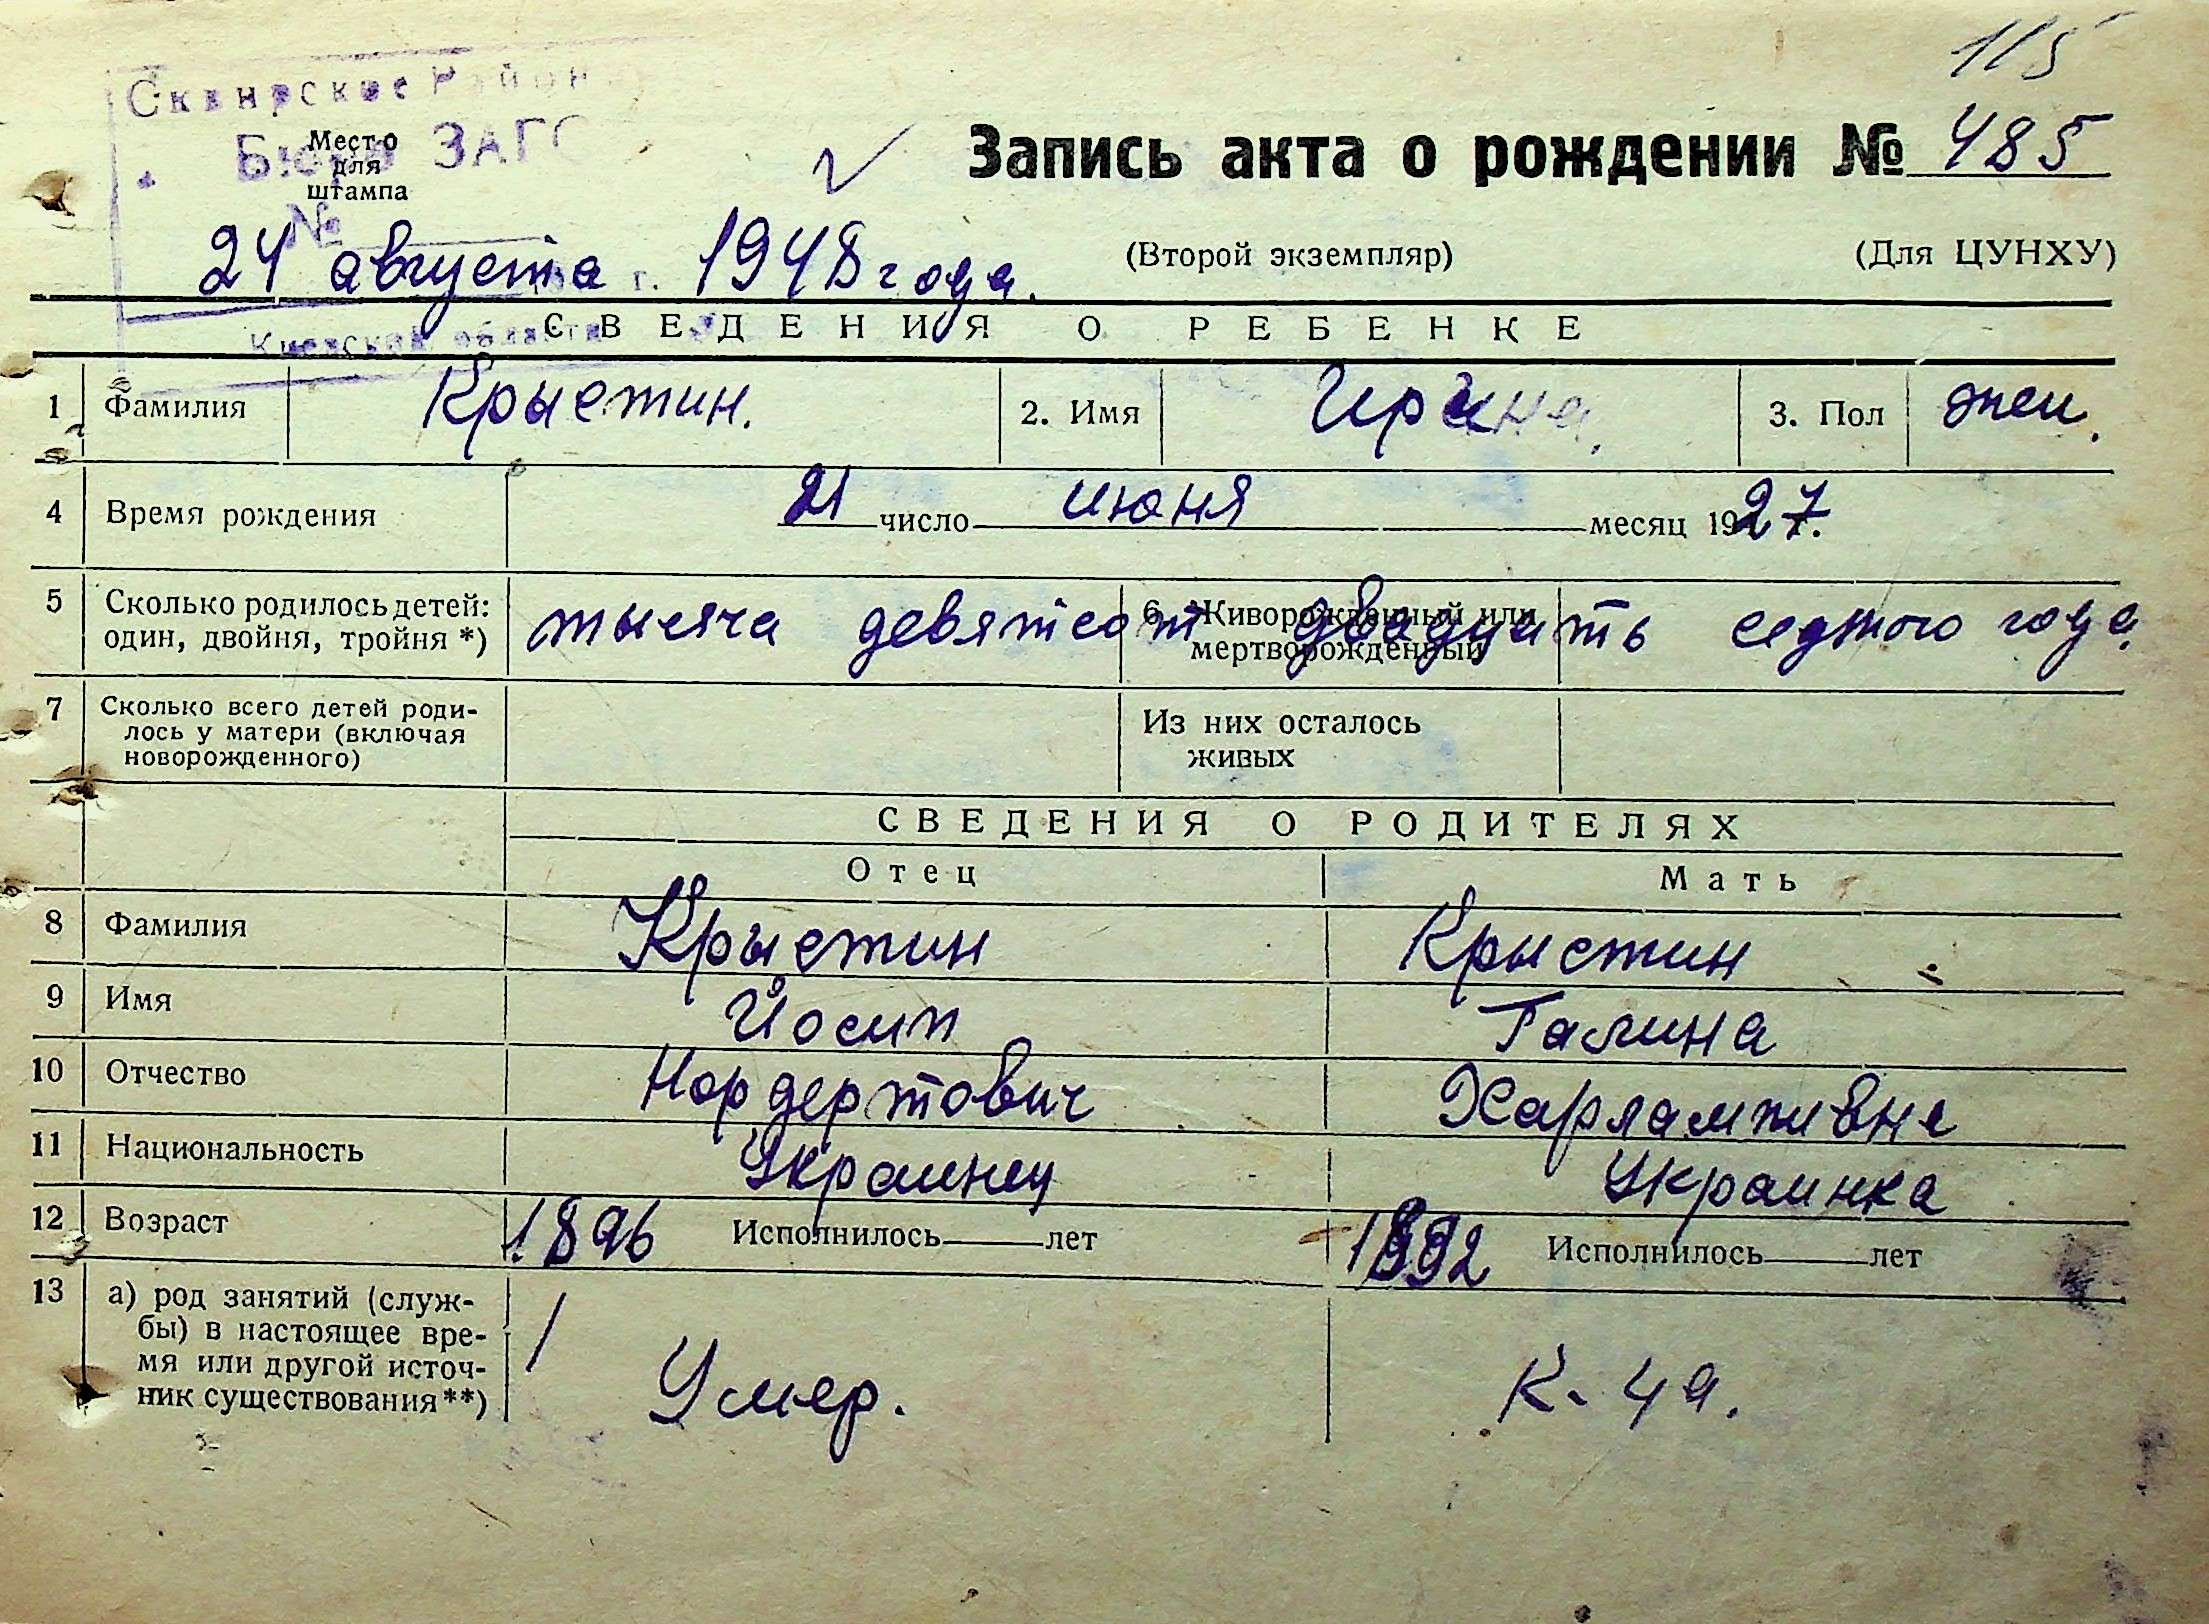 115
Сквирское Район
Бюро ЗАГС
Место
для
штампа
№
Запись акта о рождении № 485
24 августа г. 1948 года.
(Второй экземпляр) (Для ЦУНХУ)
Киевской области
СВЕДЕНИЯ О РЕБЕНКЕ
1 Фамилия Крыстин. 2. Имя Ирина. 3. Пол жен.
4 Время рождения 21 число июня месяц 1927.
5 Сколько родилось детей: один, двойня, тройня *) 6. Живорожденный или мертворожденный
тысяча девятсот двадцать седмого года.
7 Сколько всего детей роди-
лось у матери (включая
новорожденного)
Из них осталось
живых
СВЕДЕНИЯ О РОДИТЕЛЯХ
Отец Мать
8 Фамилия Крыстин Крыстин
9 Имя Йосип Галина
10 Отчество Нордертович Харлампивна
11 Национальность Украинец Украинка
12 Возраст 1896 Исполнилось лет 1892 Исполнилось лет
13 а) род занятий (служ-
бы) в настоящее вре-
мя или другой источ-
ник существования**)
Умер. К-ца.